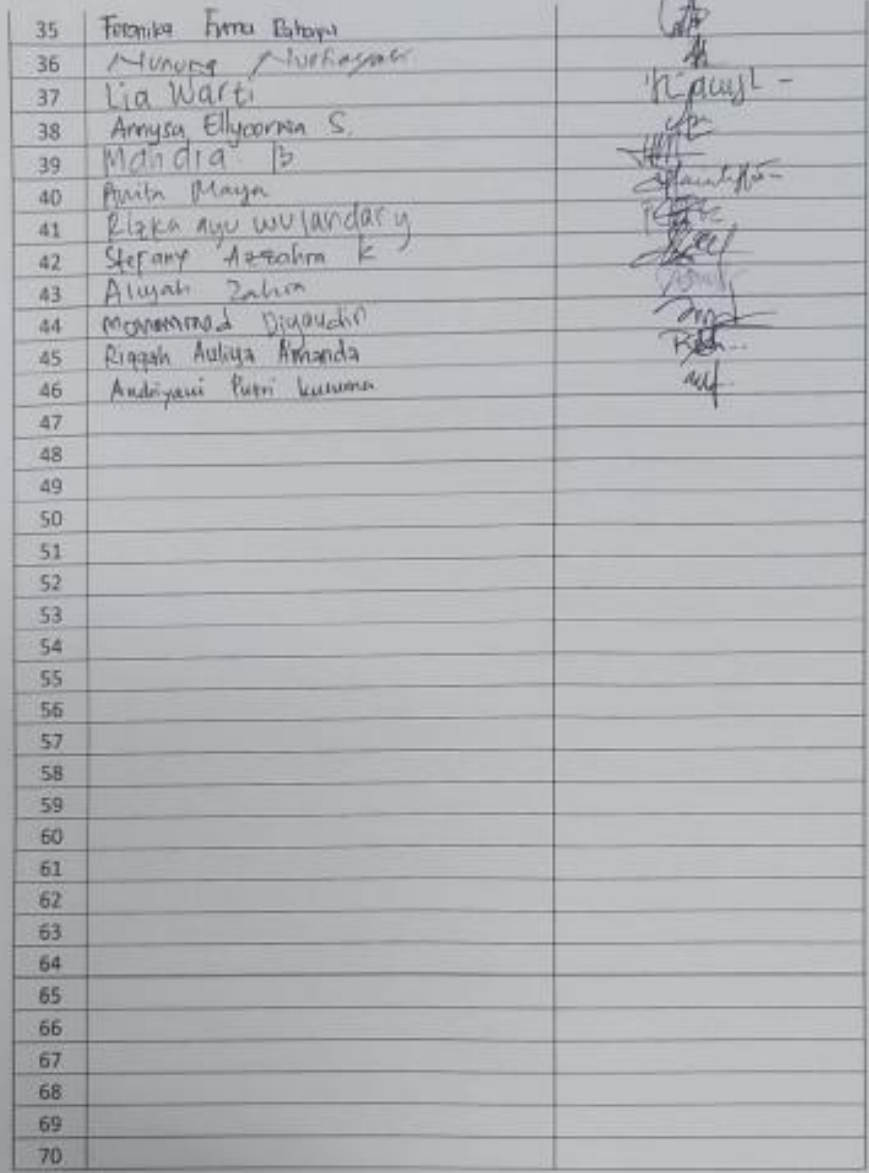 35 Feronika Erma Rahayu
36 Nunung
37 Lia Warti
38 Annysa Ellycornia S.
39 Mandra B
40 Anita Maya
41 Rizka ayu wulandary
42 Stefany Azzahra K
43 Aliyah Zahra
44 Mohammad Diyaudin
45 Riqqah Auliya Amanda
46 Andriyani Putri kusuma
47
48
49
50
51
52
53
54
55
56
57
58
59
60
61
62
63
64
65
66
67
68
69
70